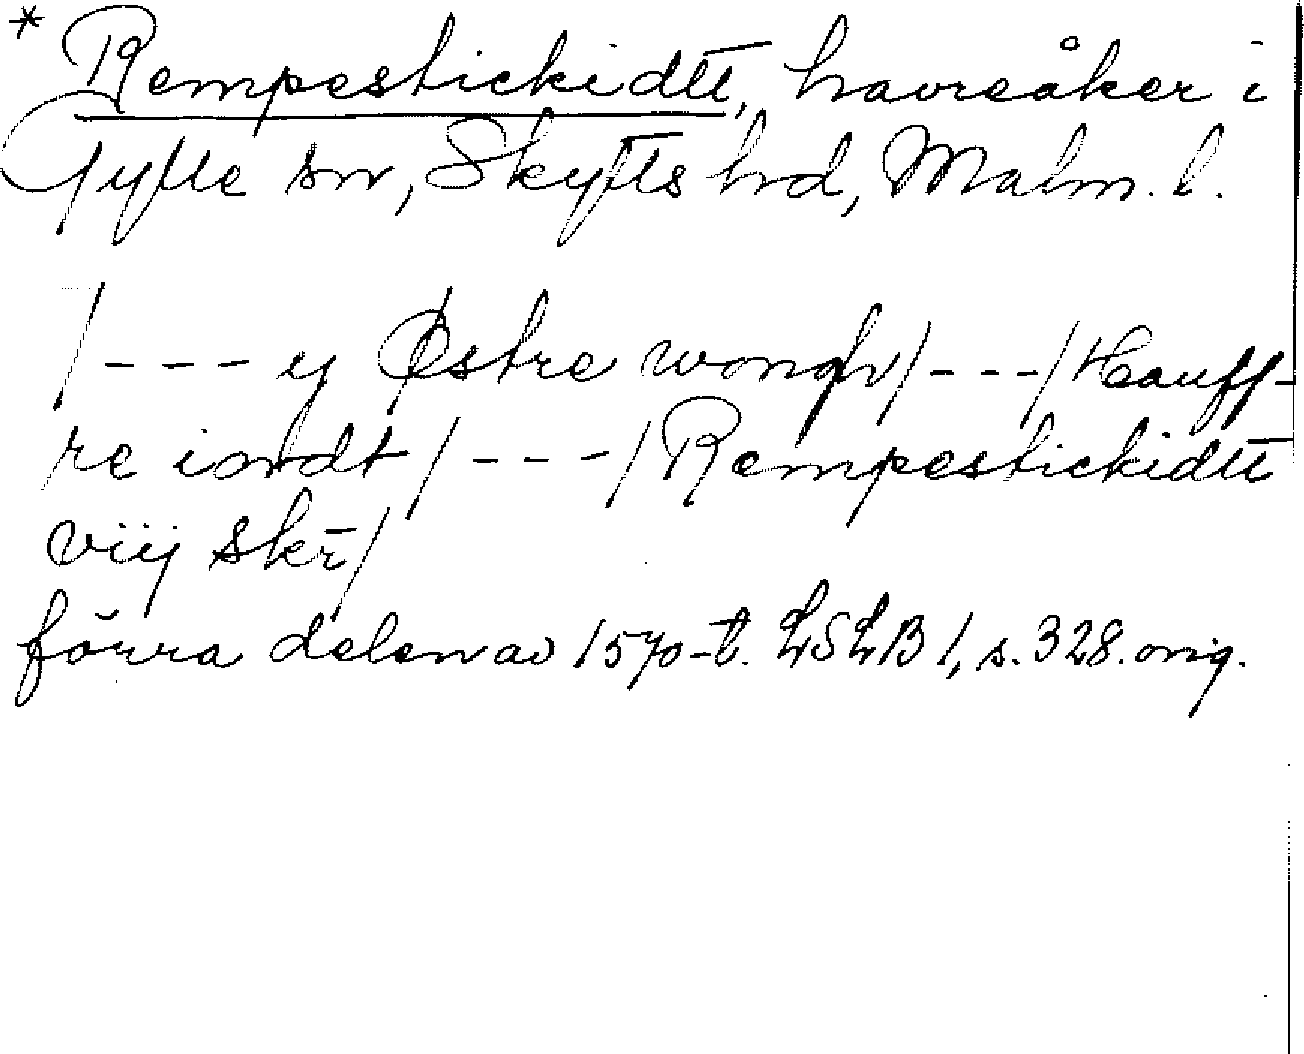 * Rempestickidtt, havreåker i
Gylle sn, Skytts hd, Malm. l.
/--- y Østre wongh/---/Hauff-
re iordt/---/Rempestickidtt
viij skr̄/
förra delen av 1570-t. LSLB 1, s. 328. orig.